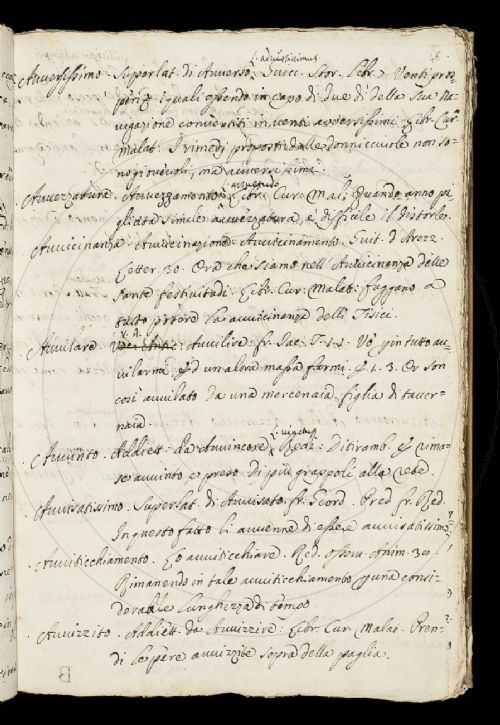 46.
L. Adversissimus
Avversissimo. Superlat. di Avverso. Succ. Stor. Libr. 7. Venti pros
peri, i quali essendo in capo di due dì della sua Na
vigazione convertiti in venti avversissimi. Libr. Cur.
Malat. I rimedj proposti dalle donnicciuole non so-
no giovevoli, ma avversissimi.
L. assuetudo
Avvezzatura. Avvezzamento. Libr. Cur. Mal. Quando anno pi
gliata simile avvezzatura, è difficile il distorle.
Avvicinanza. Avvicinazione. Avvicinamento. Guit. d'Arezz.
Letter. 30. Ora che siamo nell'Avvicinanza delle
sante festivitadi. Libr. Cur. Malat. fuggano a
tutto potere la avvicinanza delli Tisici.
Avvilare V. A. Avvilire. fr. Iac. T. Vo' pur tutto av
vilarmi. Ed un'alora massa farmi. E 1. 3. Or son
così avvilato da una mercenaia figlia di taver-
naia.
L. vinctus
Avvinto. Addiett. da Avvincere. Redi. Ditiramb. E rima-
se avvinto e preso di più grappoli alla rete.
Avvisatissimo. Superlat. di Avvisato. fr. Giord. Pred. fr. Red.
In questo fatto li avvenne di essere avvisatissimi.
Avviticchiamento. Lo avviticchiare. Red. Osserv. Anim. 39.
Rimanendo in tale avviticchiamento per una consi-
derabile lunghezza di tempo.
Avvizzito. Addiett. da Avvizzire. Libr. Cur. Malat. Pren-
di le pere avvizzite sopra della paglia.
B